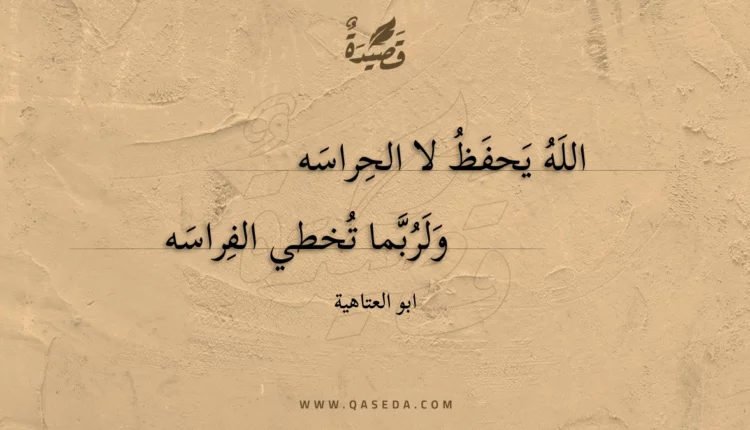 قَصِيدَةٌ
اللَهُ يَحفَظُ لا الحِراسَه
وَلَرُبَّما تُخطي الفِراسَه
ابو العتاهية
WWW.QASEDA.COM